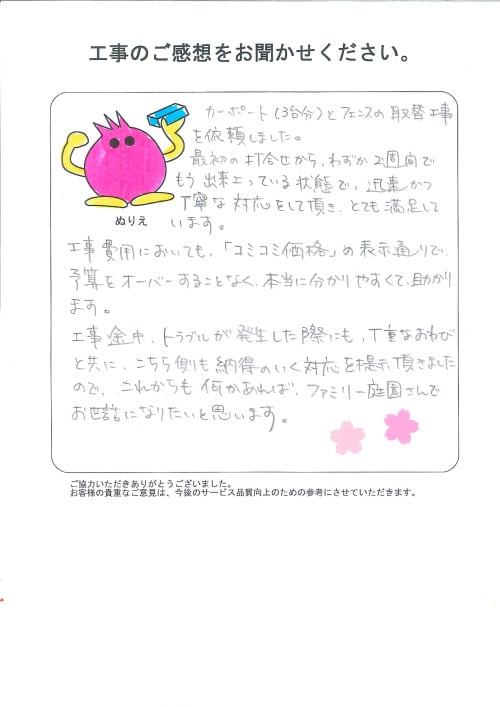 工事のご感想をお聞かせください。
カーポート(3台分)とフェンスの取替工事
を依頼しました。
最初の打合せから、わずか2週間で
もう出来上っている状態で、迅速かつ
丁寧な対応をして頂き、とても満足して
います。
ぬりえ
工事費用においても、「コミコミ価格」の表示通りで、
予算をオーバーすることなく、本当に分かりやすくて、助かり
ます。
工事中、トラブルが発生した際にも、丁重なおわび
と共に、こちら側も納得のいく対応を提示頂きました
ので、これからも何かあれば、ファミリー庭園さんで
お世話になりたいと思います。
ご協力いただきありがとうございました。
お客様の貴重なご意見は、今後のサービス品質向上のための参考にさせていただきます。